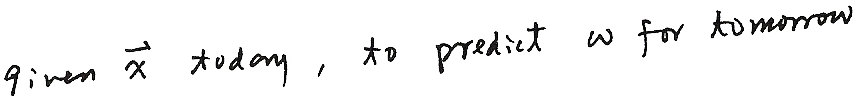 given $\vec{x}$ today, to predict ω for tomorrow